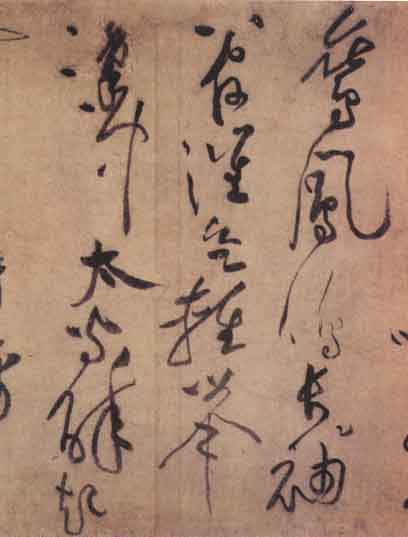 鸞鳳鳴長袖
管催欲輕舉
漢中太守醉起